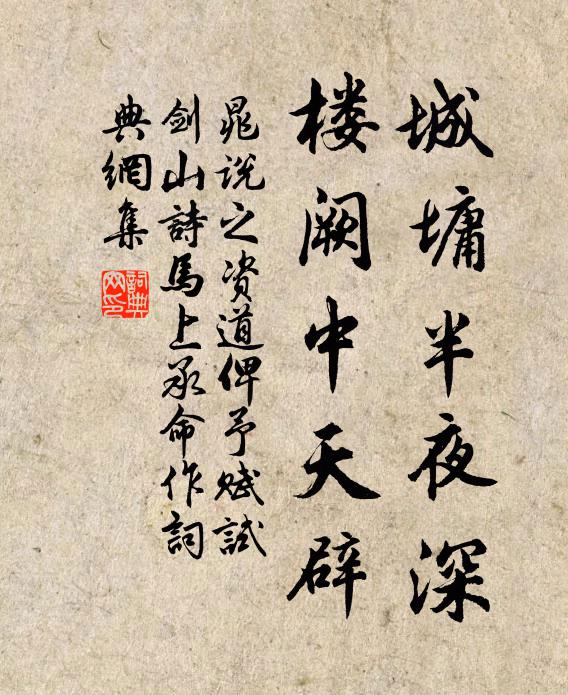 城墉半夜深
楼阙中天辟
晁说之资道俾予赋試
剑山詩馬上承命作詞
典網集
詞典网印